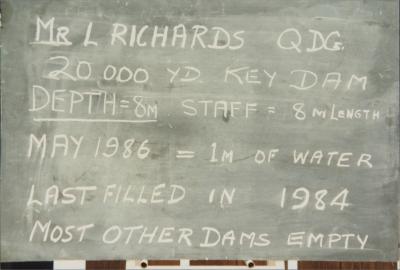 MR L RICHARDS QDG.
20 000 YD KEY DAM
DEPTH = 8M STAFF = 8 M LENGTH
MAY 1986 = 1M OF WATER
LAST FILLED IN 1984
MOST OTHER DAMS EMPTY